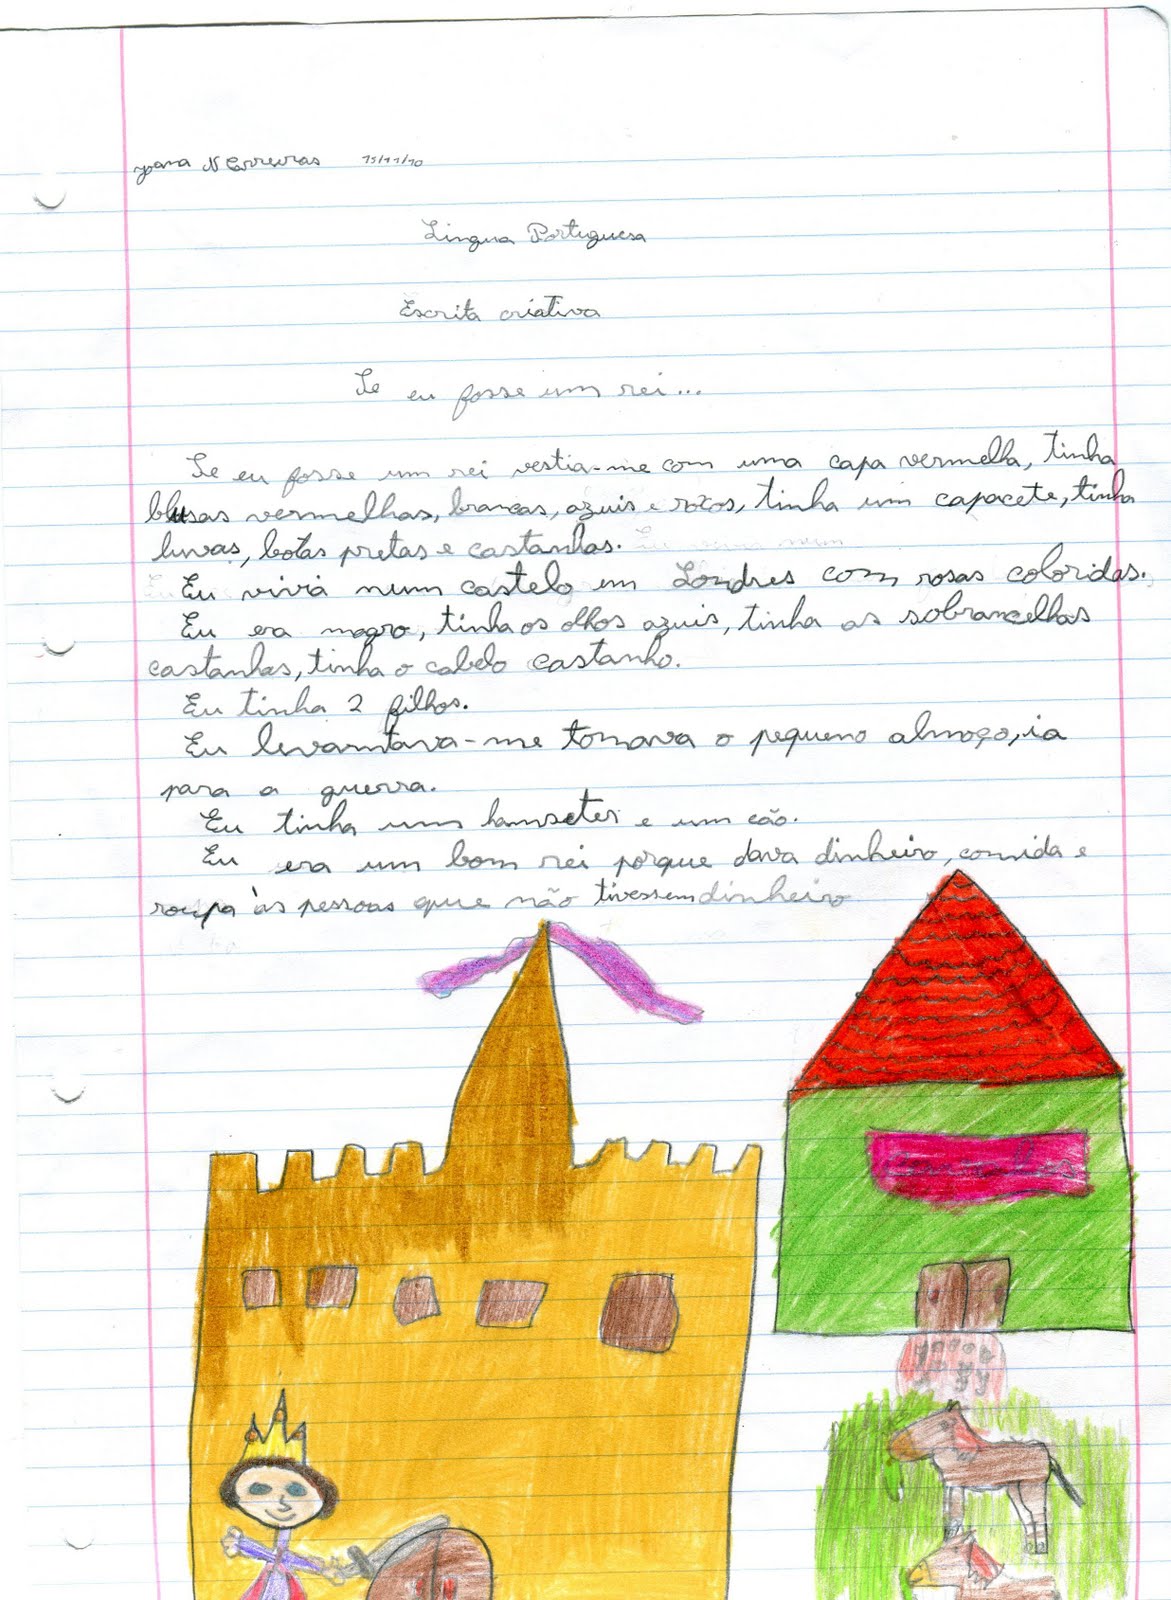 Joana N Carreiras 15/11/10
Língua Portuguesa
Escrita criativa
Se eu fosse um rei...
Se eu fosse um rei vestia-me com uma capa vermelha, tinha
blusas vermelhas, brancas, azuis e roxos, tinha um capacete, tinha
luvas, botas pretas e castanhas.
Eu vivia num castelo em Londres com rosas coloridas.
Eu era magro, tinha os olhos azuis, tinha as sobrancelhas
castanhas, tinha o cabelo castanho.
Eu tinha 2 filhos.
Eu levantava-me tomava o pequeno almoço, ia
para a guerra.
Eu tinha um hamseter e um cão.
Eu era um bom rei porque dava dinheiro, comida e
roupa às pessoas que não tivessem dinheiro